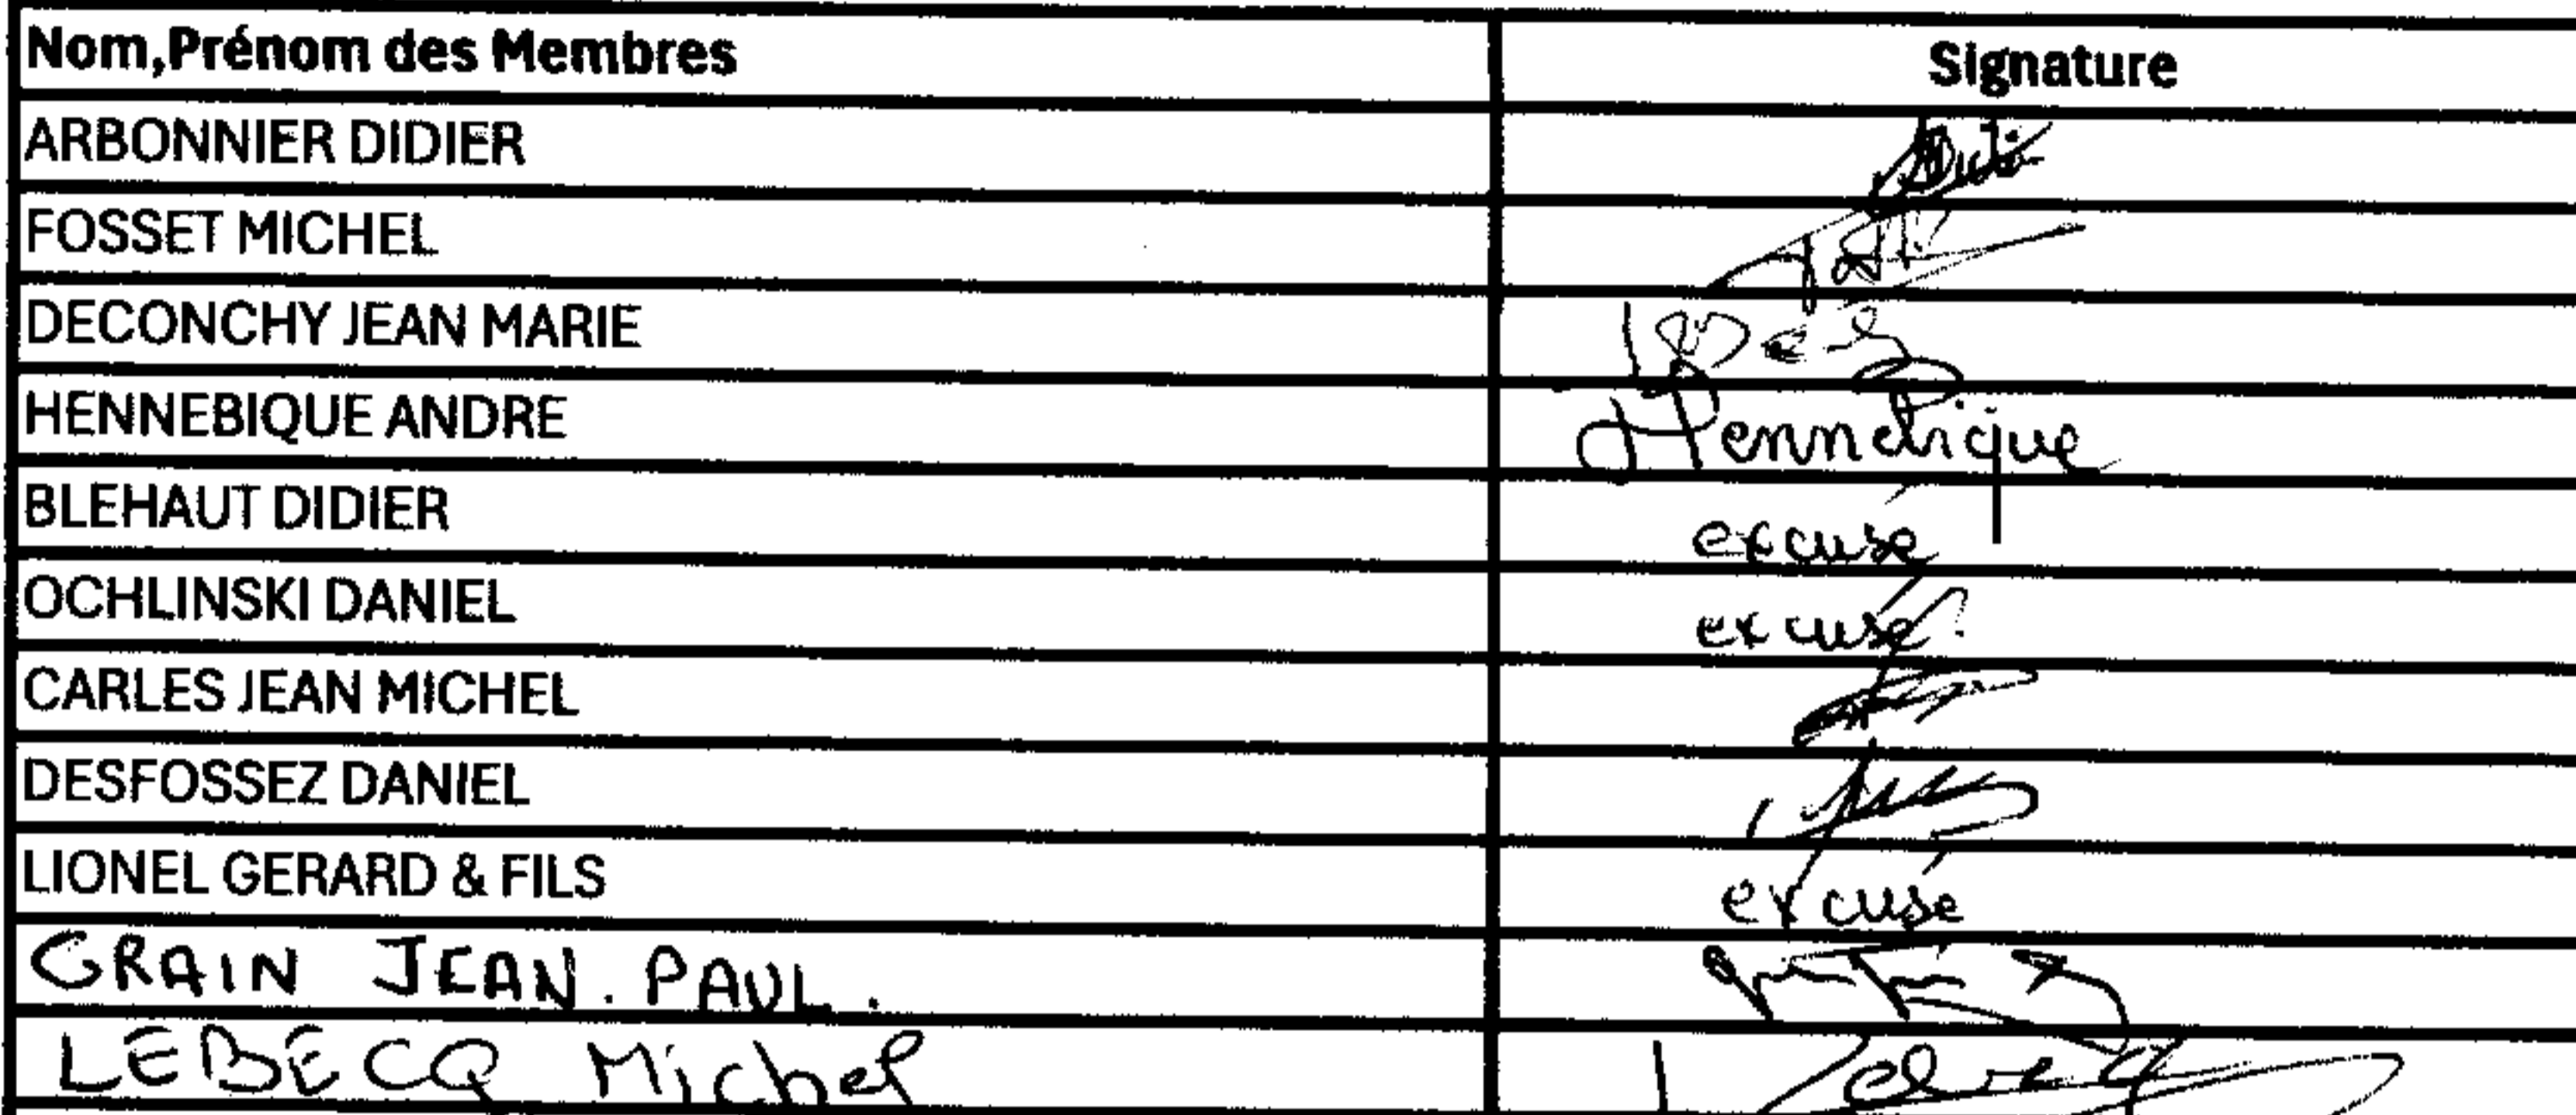 Nom,Prénom des Membres Signature
ARBONNIER DIDIER
FOSSET MICHEL
DECONCHY JEAN MARIE
HENNEBIQUE ANDRE Hennebique
BLEHAUT DIDIER excusé
OCHLINSKI DANIEL excusé
CARLES JEAN MICHEL
DESFOSSEZ DANIEL
LIONEL GERARD & FILS excusé
GRAIN JEAN.PAUL.
LEBECQ Michel